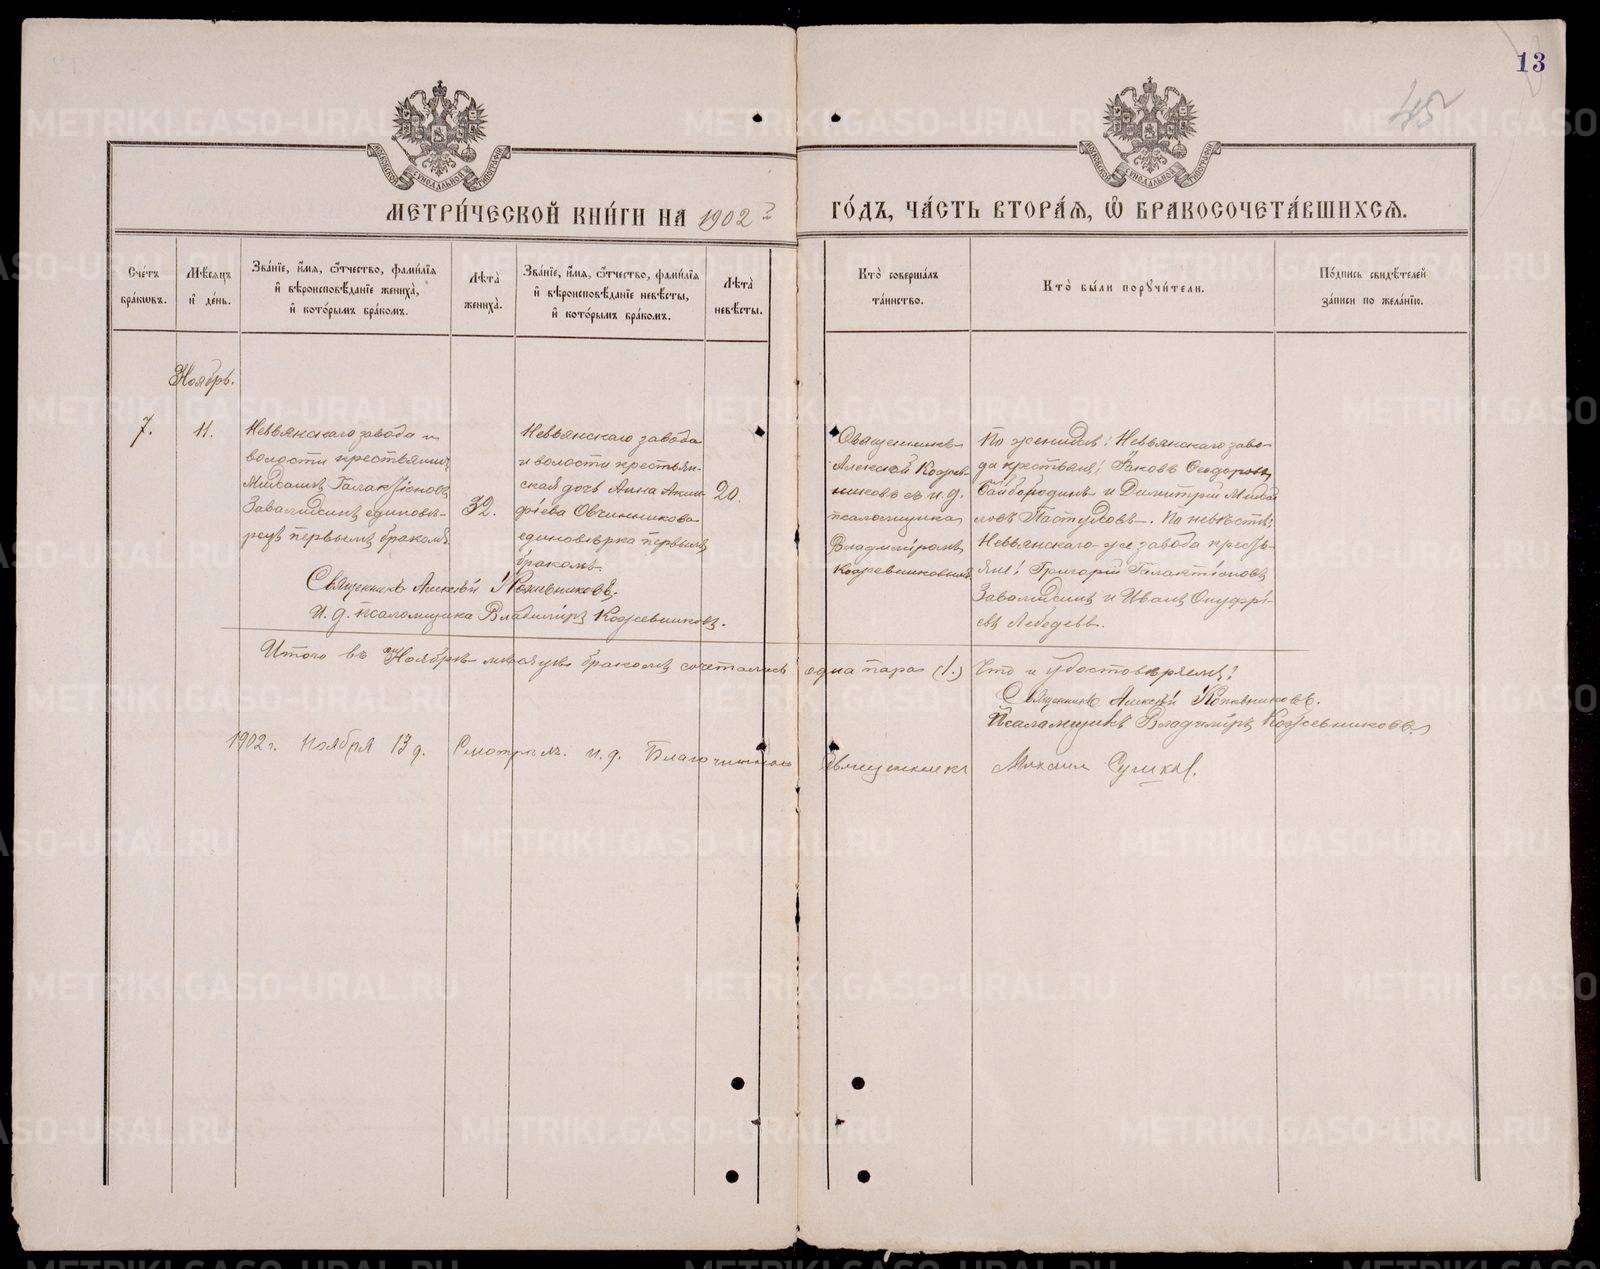 13
45
МЕТРИ́ЧЕСКОЙ КНИ́ГИ НА 1902 ГО́ДЪ, ЧА́СТЬ ВТОРА́Ѧ, Ѡ҆ БРАКОСОЧЕТА́ВШИХСѦ.
Сче́тъ бра́кωвъ.
Мѣ́сѧцъ и҆ де́нь.
Зва́нїе, и҆́мѧ, ѻ҆́тчество, фами́лїѧ и҆ вѣроисповѣ́данїе жениха̀, и҆ кото́рымъ бра́комъ.
Лѣ́та жениха̀.
Зва́нїе, и҆́мѧ, ѻ҆́тчество, фами́лїѧ и҆ вѣроисповѣ́данїе невѣ́сты, и҆ кото́рымъ бра́комъ.
Лѣ́та невѣ́сты.
Кто̀ соверша́лъ та́инство.
Кто̀ бы́ли порꙋчи́тели.
По́дпись свидѣ́телей за́писи по жела́нїю.
Ноябрь.
7.
11.
Невьянскаго завода и
волости крестьянинъ
Михаилъ Галактіоновъ
Завалишинъ единовѣ-
рецъ первымъ бракомъ
32.
Невьянскаго завода
и волости крестьян-
ская дочь Анна Акин-
фіева Овчинникова
единовѣрка первымъ
бракомъ
20.
Священникъ
Алексѣй Кожев-
никовъ съ и. д.
псаломщика
Владиміромъ
Кожевниковымъ
По женихѣ: Невьянскаго заво-
да крестьяне: Іаковъ Ѳеодоровъ
Байбородинъ и Димитрій Михай
ловъ Пастуховъ. По невѣстѣ:
Невьянскаго-же завода кресть-
яне: Григорій Галактіоновъ
Завалишинъ и Иванъ Онуфрі-
евъ Лебедевъ.
Священникъ Алексѣй Кожевниковъ.
И. д. псаломщика Владиміръ Кожевниковъ.
Итого въ Ноябрѣ мѣсяцѣ бракомъ сочеталась одна пара (1.) Что и удостовѣряемъ:
Священникъ Алексѣй Кожевниковъ.
Псаломщикъ Владиміръ Кожевниковъ
1902 г. Ноября 13 д. Смотрѣлъ. и. д. Благочиннаго Священникъ
METRIKI.GASO-URAL.RU